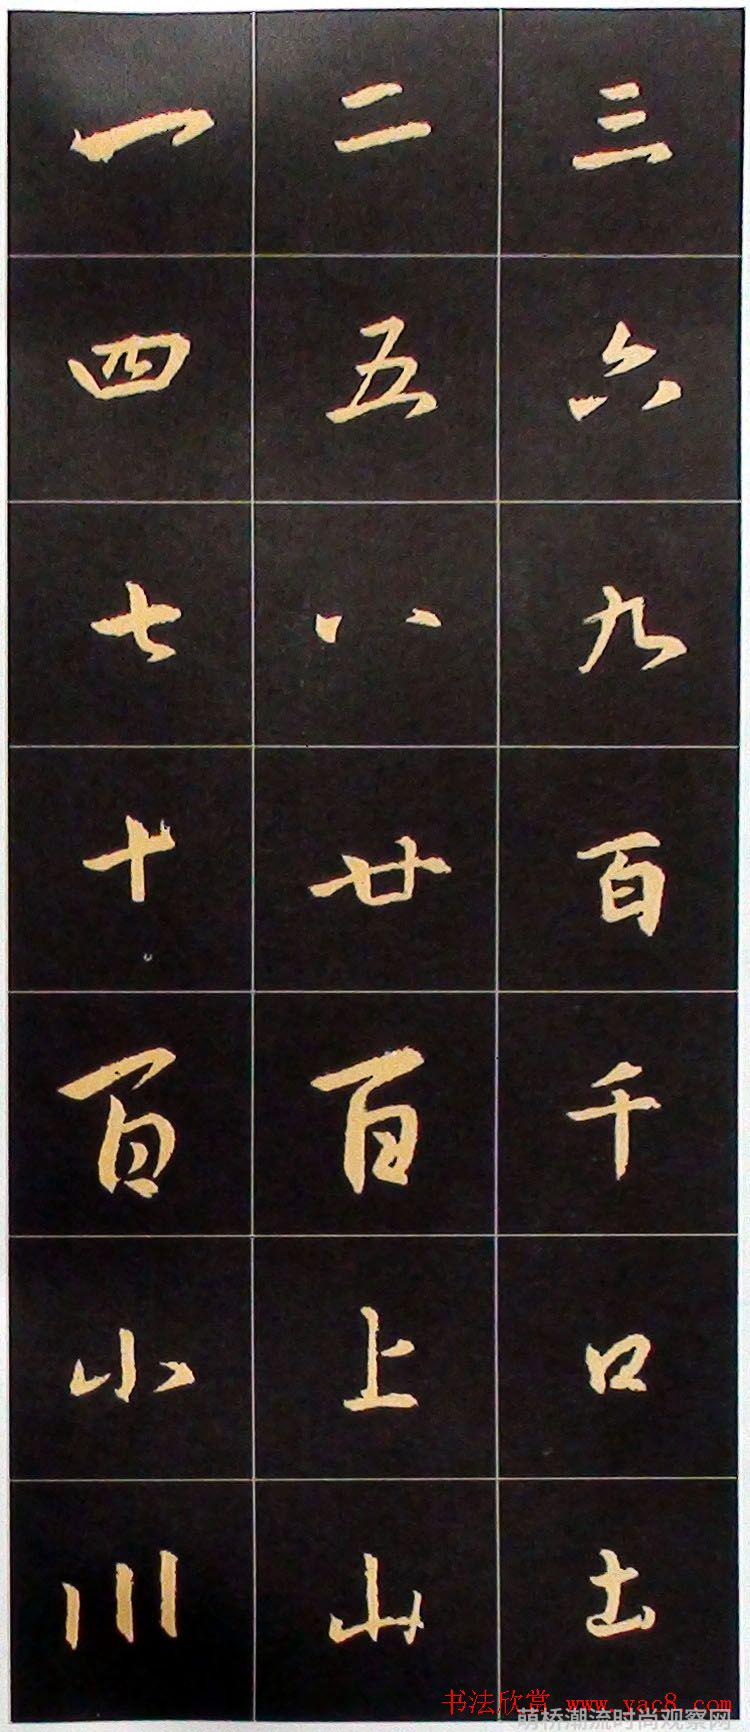 一 二 三
四 五 六
七 八 九
十 廿 百
百 百 千
小 上 口
川 山 土
书法欣赏 www.yac8.com
萌桥潮流时尚观察网